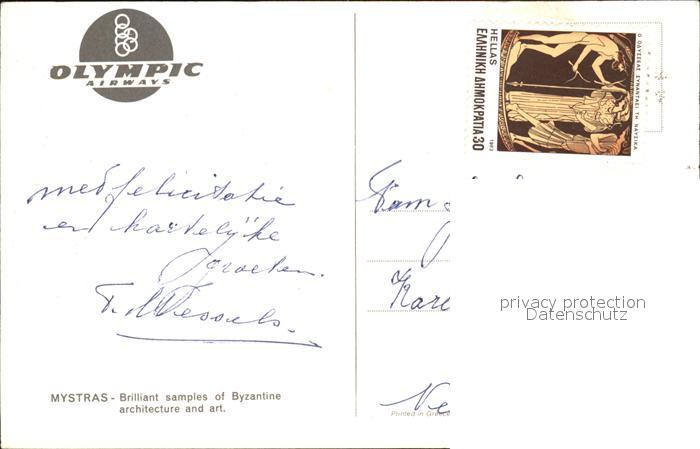 OLYMPIC
AIRWAYS
med felicitatie
en hartelijke
groeten.
MYSTRAS - Brilliant samples of Byzantine
architecture and art.
HELLAS
ΕΛΛΗΝΙΚΗ ΔΗΜΟΚΡΑΤΙΑ 30
1983
Ο ΟΔΥΣΣΕΑΣ ΣΥΝΑΝΤΑΕΙ ΤΗ ΝΑΥΣΙΚΑ
Fam
Kare
privacy protection
Datenschutz
Ne
Printed in Greece